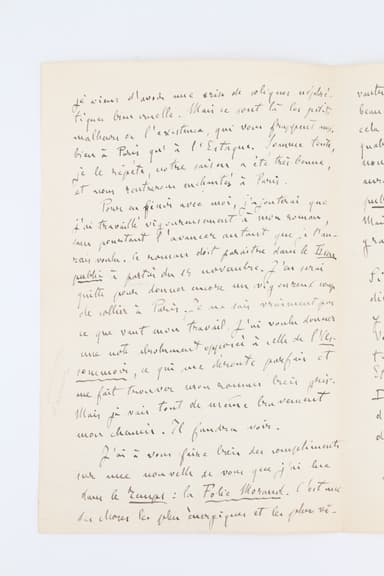 je viens d'avoir une crise de coliques néphré-
tiques bien cruelle. Mais ce sont là les petits
malheurs de l'existence, qui vous frappent aussi
bien à Paris qu'à l'Estaque. Somme toute,
je le répète, notre saison a été très bonne,
et nous rentrerons enchantés à Paris.
Pour en finir avec moi, j'ajouterai que
j'ai travaillé vigoureusement à mon roman,
sans pourtant l'avancer autant que je l'au-
rais voulu. Ce roman doit paraître dans le
publié à partir du 15 novembre. J'en serai
quitte pour donner encore un vigoureux coup
de collier à Paris. Je ne sais vraiment pas
ce que vaut mon travail. J'ai voulu donner
une note absolument opposée à celle de l'As-
sommoir, ce qui me déroute parfois et
me fait trouver mon roman bien gris.
Mais je vais tout de même bravement
mon chemin. Il faudra voir.
J'ai à vous faire bien des compliments
sur une nouvelle de vous que j'ai lue
dans le Temps : la Folie Morand. C'est une
des choses les plus énergiques et les plus vé-